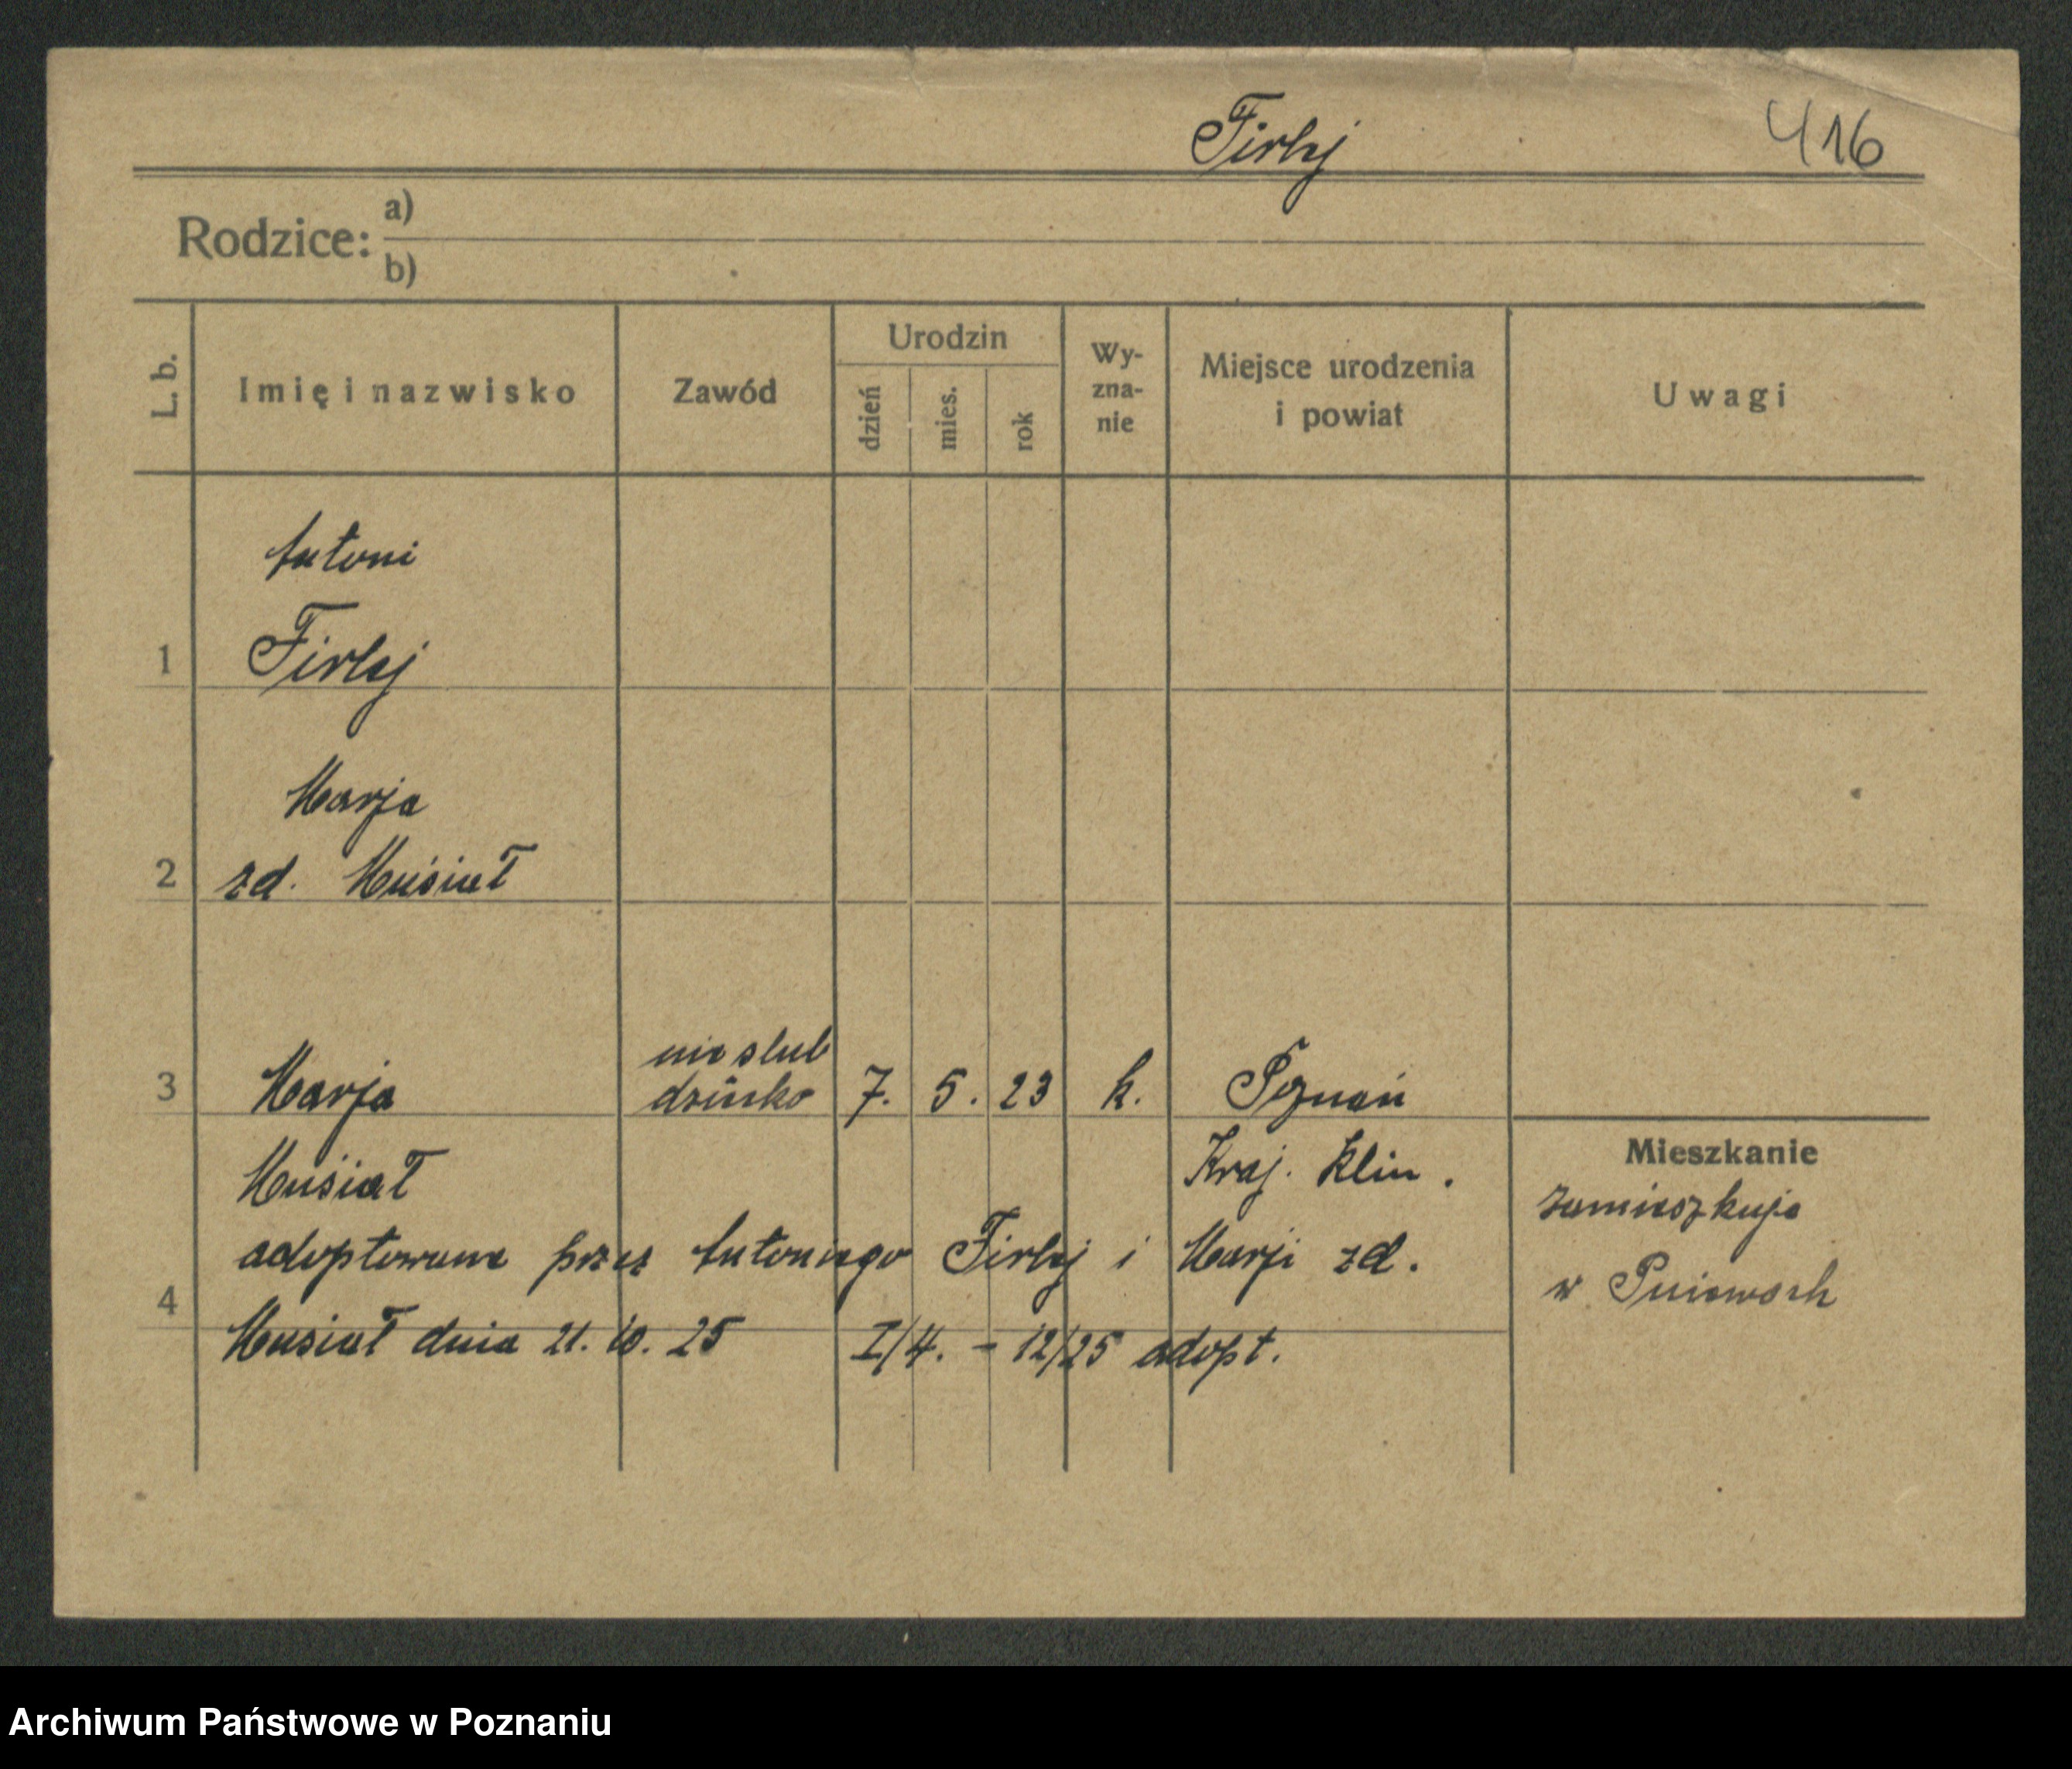 Firlej 416
Rodzice: a)
b)
L. b. Imię i nazwisko Zawód Urodzin dzień mies. rok Wy-zna-nie Miejsce urodzenia i powiat Uwagi
Antoni
1 Firlej
Marja
2 zd. Musiał
nieślub
3 Marja dziecko 7. 5. 23 k. Poznań
Musiał Kraj. Klin.
Mieszkanie
zamieszkuje
adoptowana przez Antoniego Firlej i Marji zd.
w Pniewach
4
Musiał dnia 21. 10. 25 I/4. - 12/25 adopt.
Archiwum Państwowe w Poznaniu